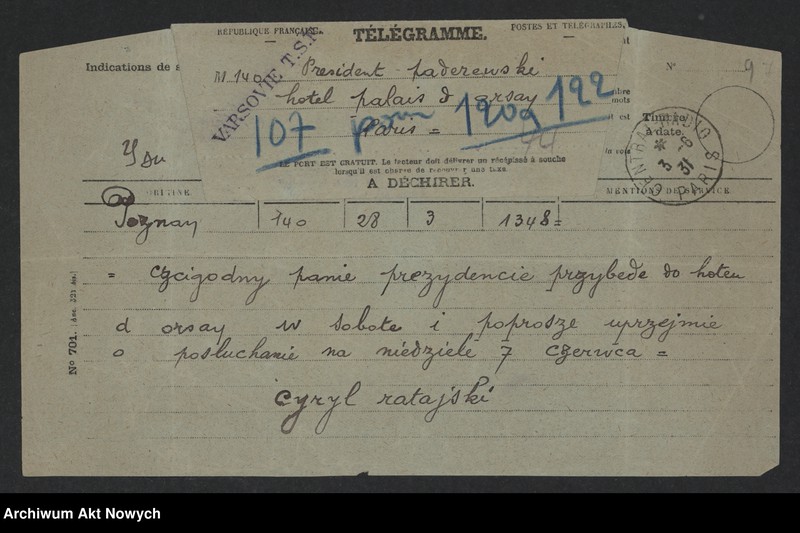 RÉPUBLIQUE FRANÇAISE.
TÉLÉGRAMME.
POSTES ET TÉLÉGRAPHES.
Indications de s
N° 97
140 President paderewski
hotel palais d orsay
Paris =
VARSOVIE T.S.F
107 pour 120g 122
44
Timbre
à date.
CENTRAL PARIS
3 -6
31
LE PORT EST GRATUIT. Le facteur doit délivrer un récépissé à souche
lorsqu'il est chargé de recevoir une taxe.
A DÉCHIRER.
MENTIONS DE SERVICE.
Poznan 140 28 3 1348 =
= czcigodny panie prezydencie przybede do hoteu
d orsay w sobote i poprosze uprzejmie
o posluchanie na niedziele 7 czerwca =
cyryl ratajski
N° 701.
Archiwum Akt Nowych